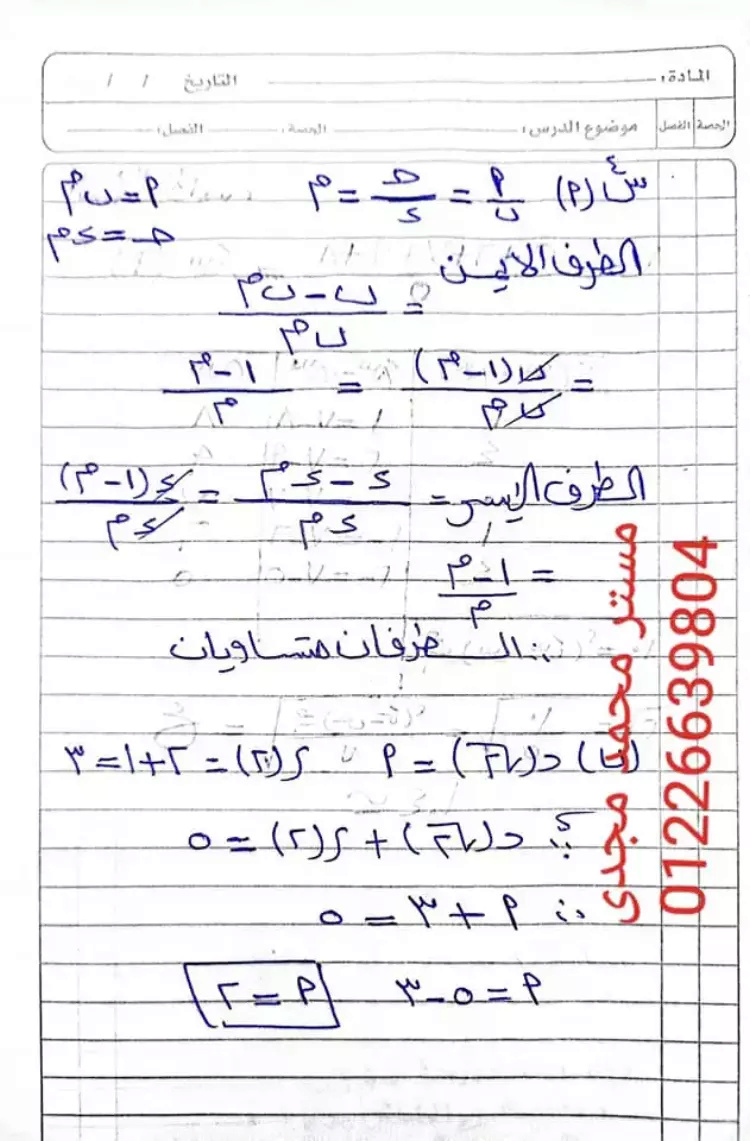 المادة: التاريخ / /
الحصة الفصل موضوع الدرس: الحصة: الفصل:
س٤ (٩) ٩/ب = ح/د = م ٩ = ب م
ح = د م
الطرف الايمن
= (ب - ب م)/(ب م)
= ب(١-م)/(ب م) = (١-م)/م
الطرف اليسر = (د - د م)/(د م) = د(١-م)/(د م)
= (١-م)/م
∴ الطرفان متساويان
(ب) د(√٣) = ٩ ر(٢) = ٢+١ = ٣
∵ د(√٣) + ر(٢) = ٥
∴ ٩ + ٣ = ٥
٩ = ٥-٣ ٩ = ٢
مستر محمد مجدى
01226639804